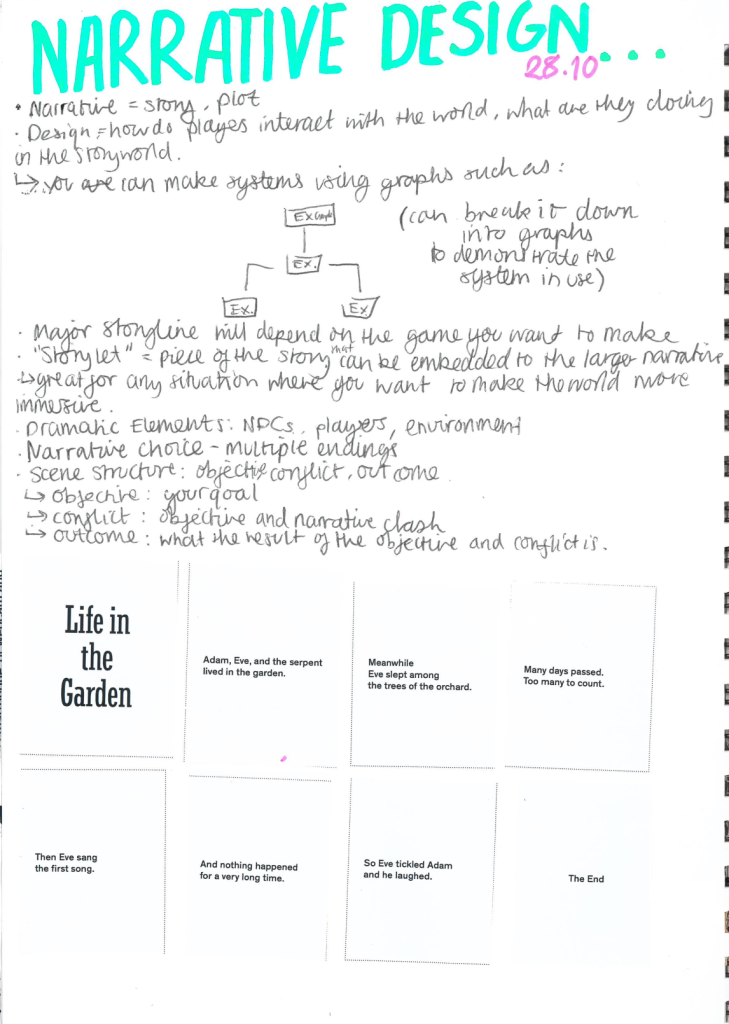 NARRATIVE DESIGN...
28.10
• Narrative = story, plot
• Design = how do players interact with the world, what are they doing
in the storyworld.
↳ you can make systems using graphs such as:
Example
Ex.
Ex.
Ex
(can break it down
into graphs
to demonstrate the
system in use)
• Major storyline will depend on the game you want to make
• "Storylet" = piece of the story that can be embedded to the larger narrative
↳ great for any situation where you want to make the world more
immersive.
• Dramatic Elements: NPCs, players, environment
• Narrative choice - multiple endings
• Scene structure: objective, conflict, outcome
↳ objective: your goal
↳ conflict: objective and narrative clash
↳ outcome: what the result of the objective and conflict is.
Life in
the
Garden
Adam, Eve, and the serpent
lived in the garden.
Meanwhile
Eve slept among
the trees of the orchard.
Many days passed.
Too many to count.
Then Eve sang
the first song.
And nothing happened
for a very long time.
So Eve tickled Adam
and he laughed.
The End